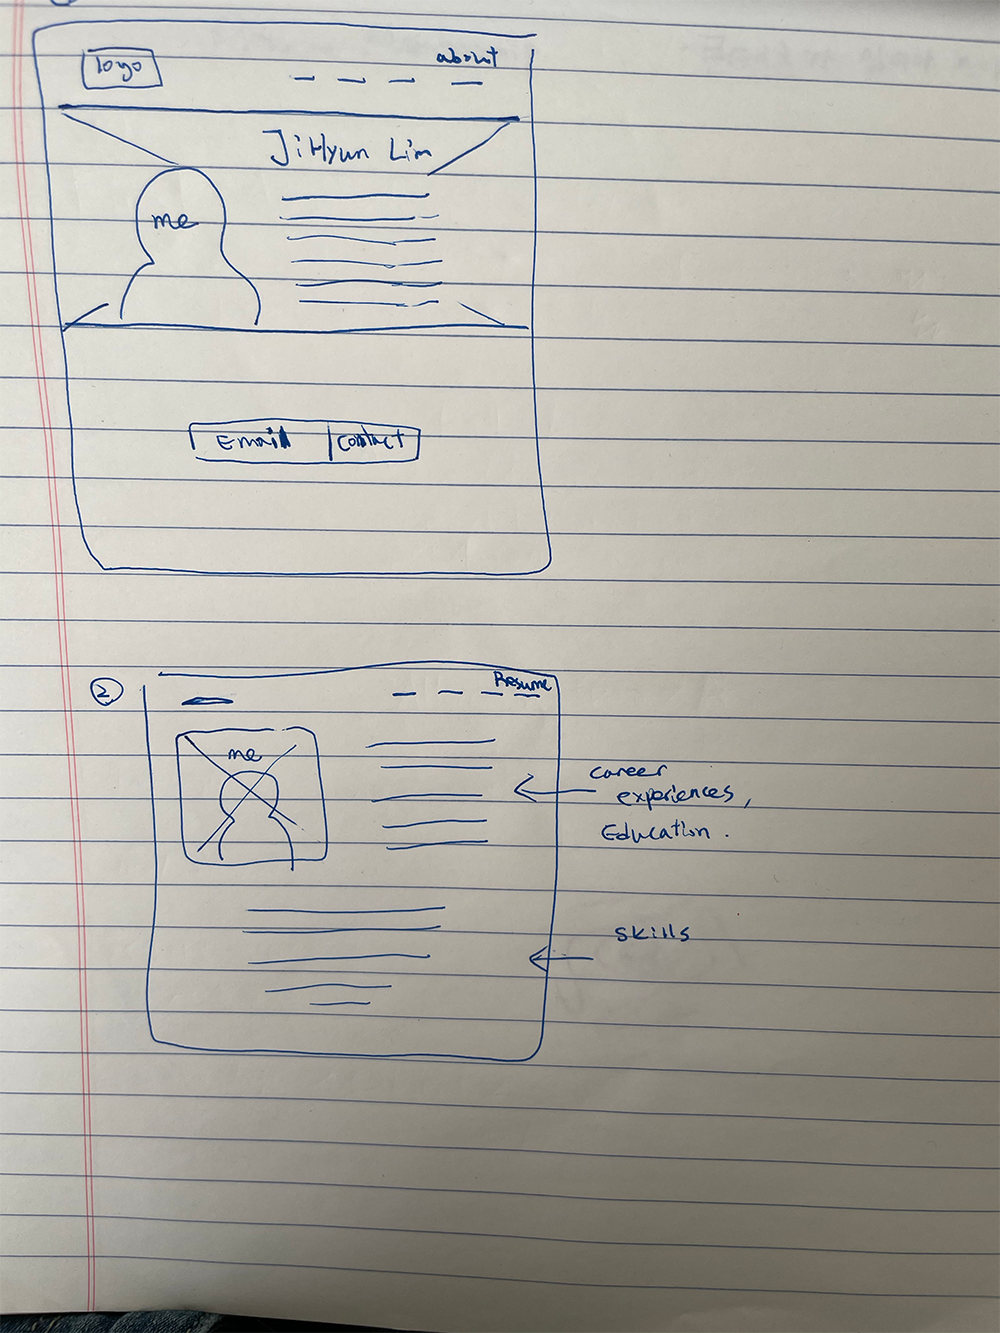 logo
about
JiHyun Lim
me
Email
contact
2
Resume
me
career
experiences,
Education.
skills